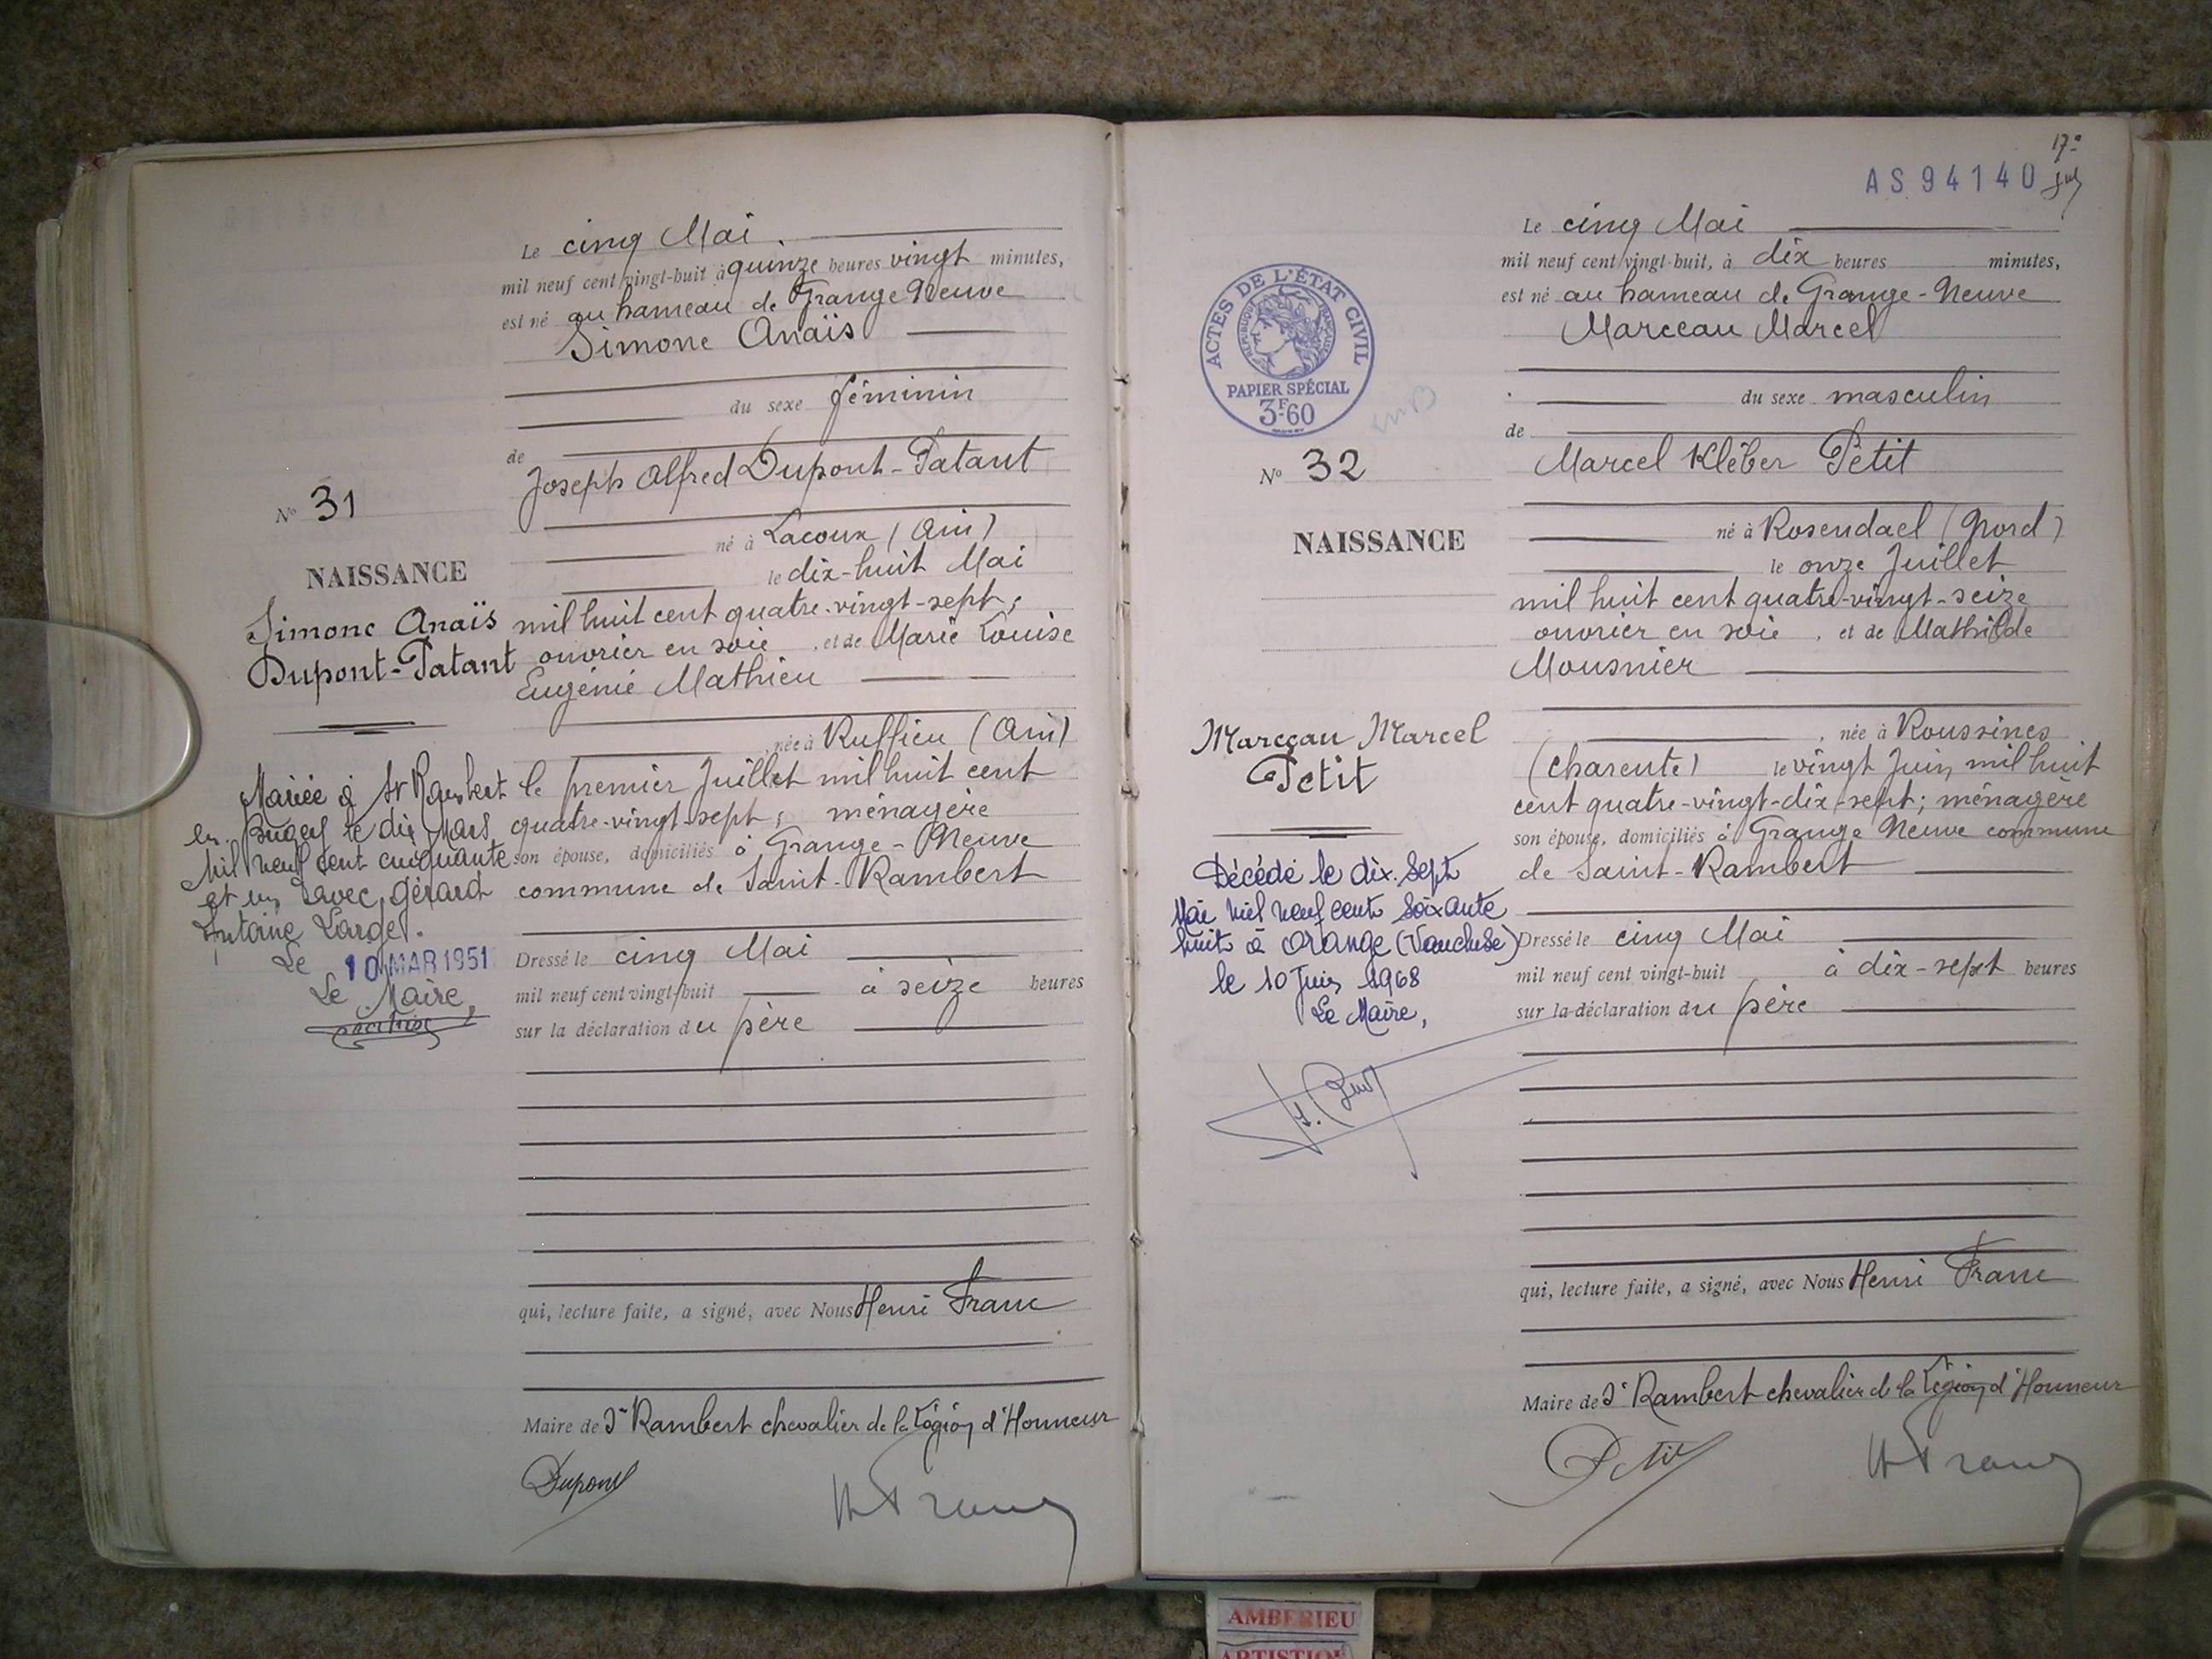 Le cinq Mai
mil neuf cent vingt-huit à quinze heures vingt minutes,
est né au hameau de Grange Neuve
Simone Anaïs
du sexe féminin
de
Joseph Alfred Dupont-Patant
né à Lacoux (Ain)
le dix-huit Mai
mil huit cent quatre-vingt-sept;
ouvrier en soie, et de Marie Louise
Eugénie Mathieu
, née à Ruffieu (Ain)
le premier Juillet mil huit cent
quatre-vingt-sept; ménagère
son épouse, domiciliés à Grange-Neuve
commune de Saint-Rambert
Dressé le cinq Mai
mil neuf cent vingt-huit à seize heures
sur la déclaration du père
qui, lecture faite, a signé, avec Nous Henri Franc
Maire de St Rambert chevalier de la Légion d'Honneur
Dupont
H Franc
No 31
NAISSANCE
Simone Anaïs
Dupont-Patant
Mariée à St Rambert
en Bugey le dix Mars
mil neuf cent cinquante
et un avec Gérard
Antoine Large.
Le 10 MAR 1951
Le Maire,
17e
AS 94140
ACTES DE L'ÉTAT CIVIL
RÉPUBLIQUE FRANÇAISE
PAPIER SPÉCIAL
3F60
No 32
NAISSANCE
Marceau Marcel
Petit
Décédé le dix-sept
Mai mil neuf cent soixante
huit à Orange (Vaucluse)
le 10 Juin 1968
Le Maire,
Le cinq Mai
mil neuf cent vingt-huit, à dix heures minutes,
est né au hameau de Grange-Neuve
Marceau Marcel
du sexe masculin
de
Marcel Kléber Petit
né à Rosendael (Nord)
le onze Juillet
mil huit cent quatre-vingt-seize
ouvrier en soie, et de Mathilde
Mousnier
, née à Roussines
(Charente) le vingt Juin mil huit
cent quatre-vingt-dix-sept; ménagère
son épouse, domiciliés à Grange Neuve commune
de Saint-Rambert
Dressé le cinq Mai
mil neuf cent vingt-huit à dix-sept heures
sur la déclaration du père
qui, lecture faite, a signé, avec Nous Henri Franc
Maire de St Rambert chevalier de la Légion d'Honneur
Petit
H Franc
AMBERIEU
ARTISTIQUE